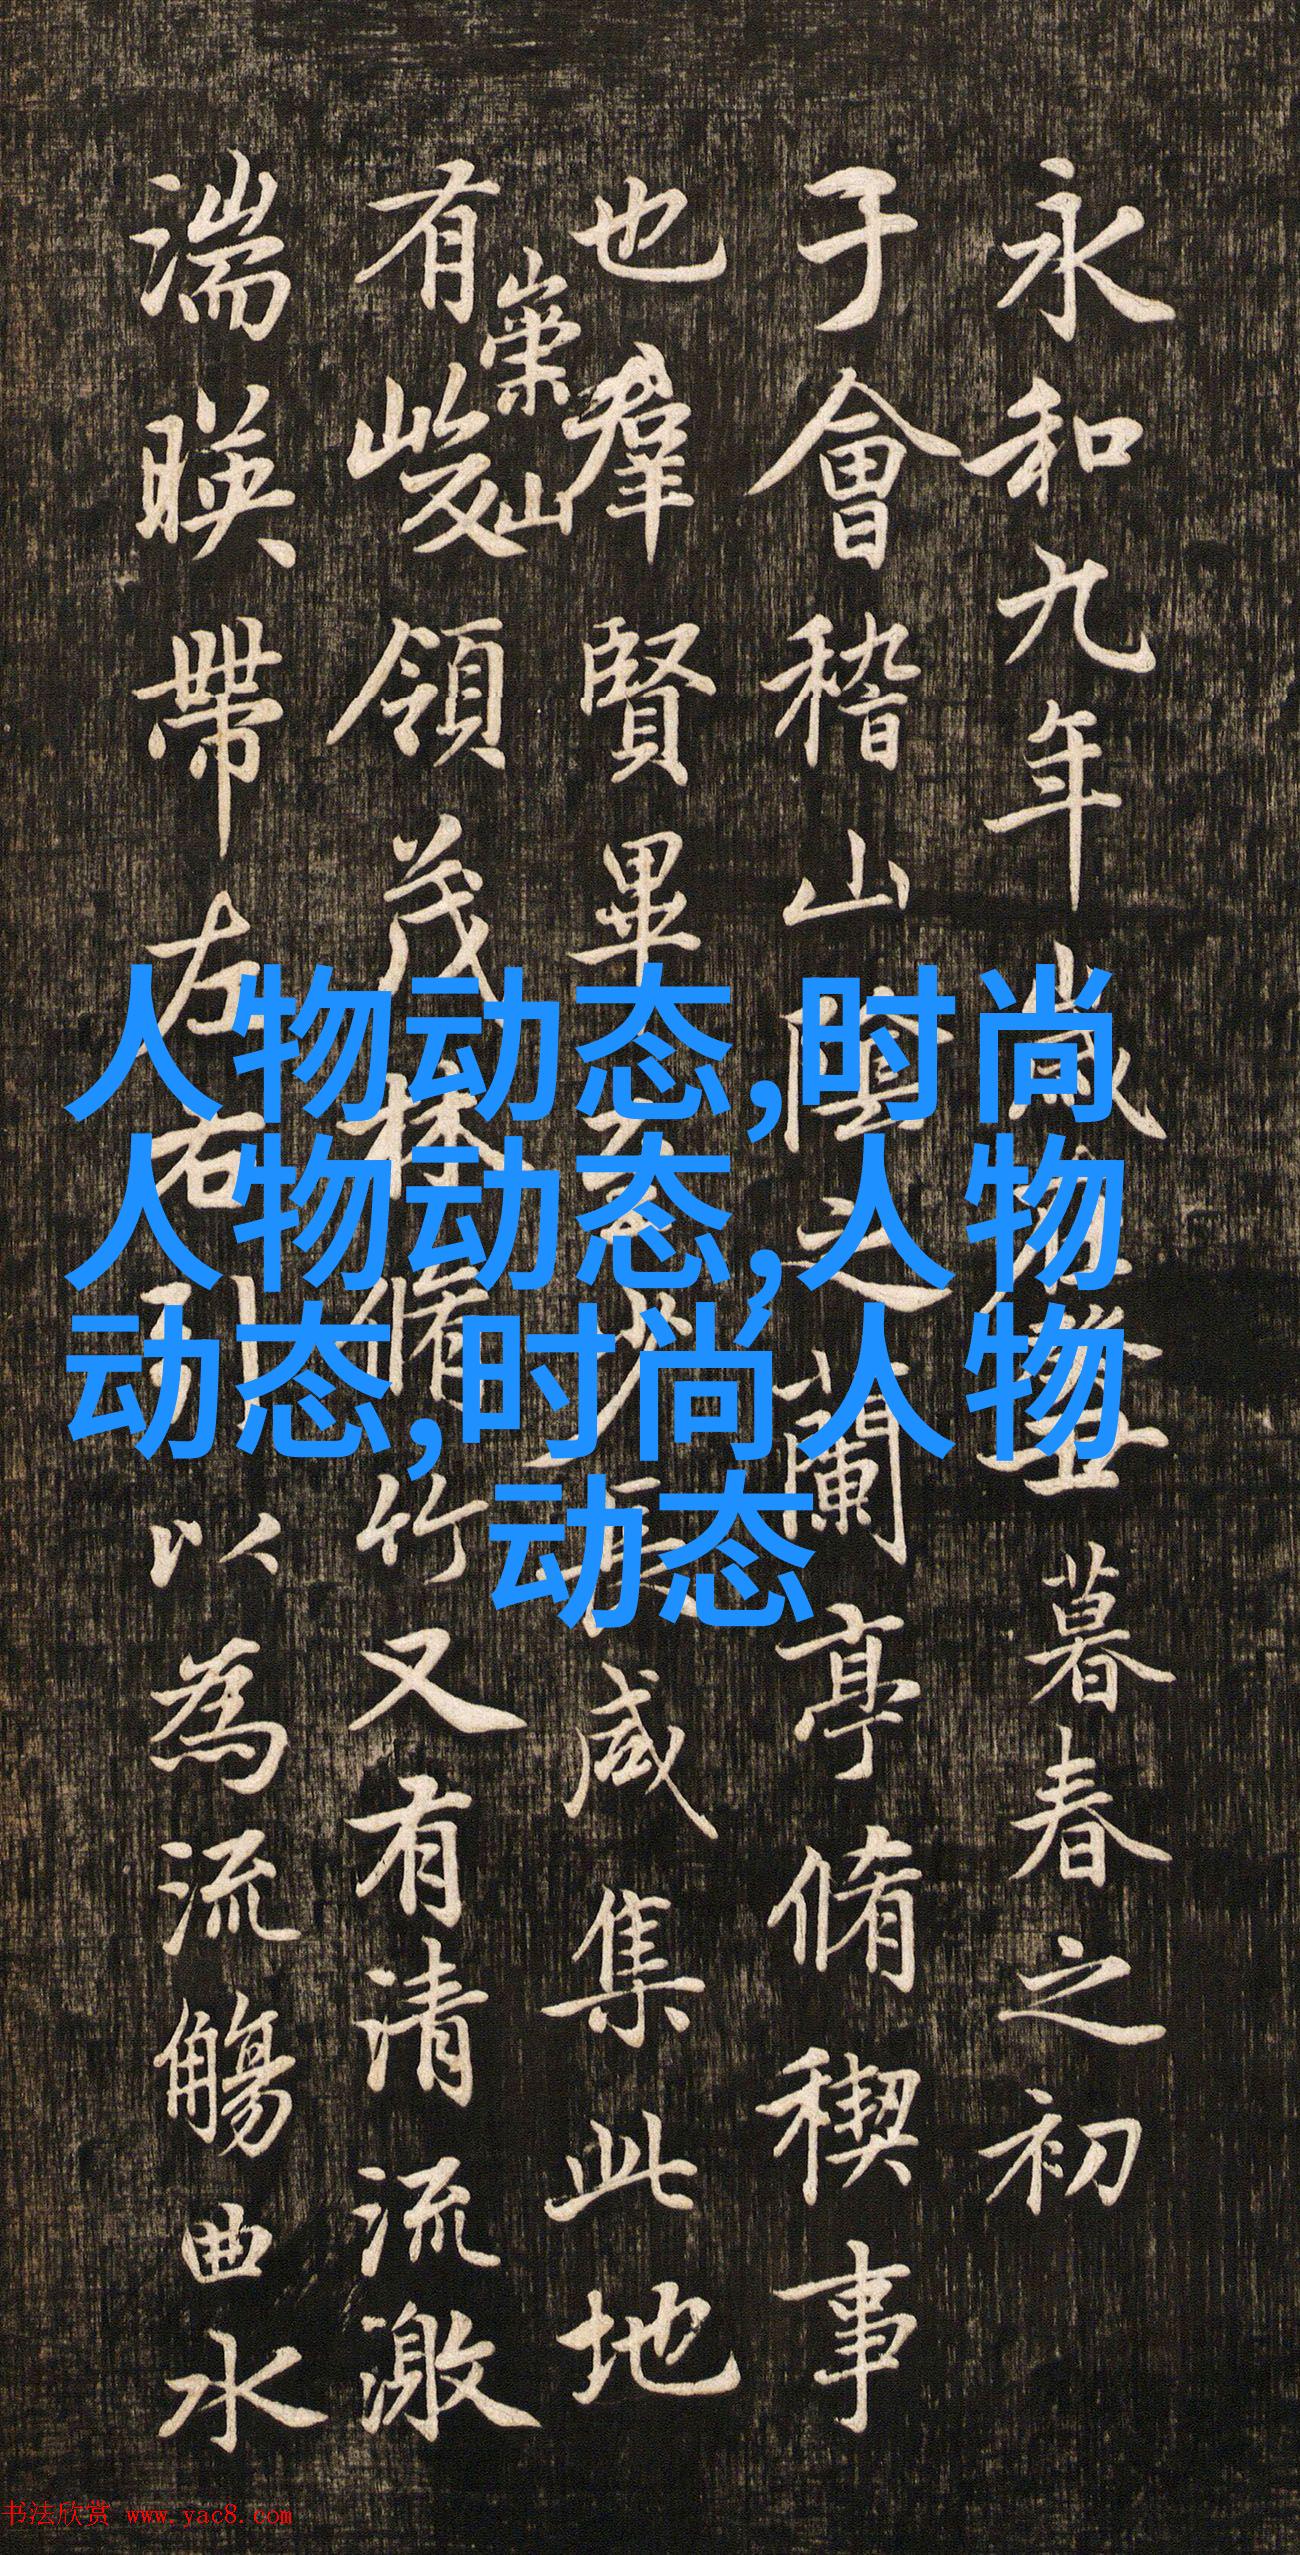 永和九年歲在癸丑暮春之初
于會稽山陰之蘭亭脩稧事
也羣賢畢至少長咸集此地
有崇山峻領茂林脩竹又有清流激
湍暎帶左右引以為流觴曲水
人物动态,时尚
人物动态,人物
动态,时尚人物
动态
书法欣赏 www.yac8.com